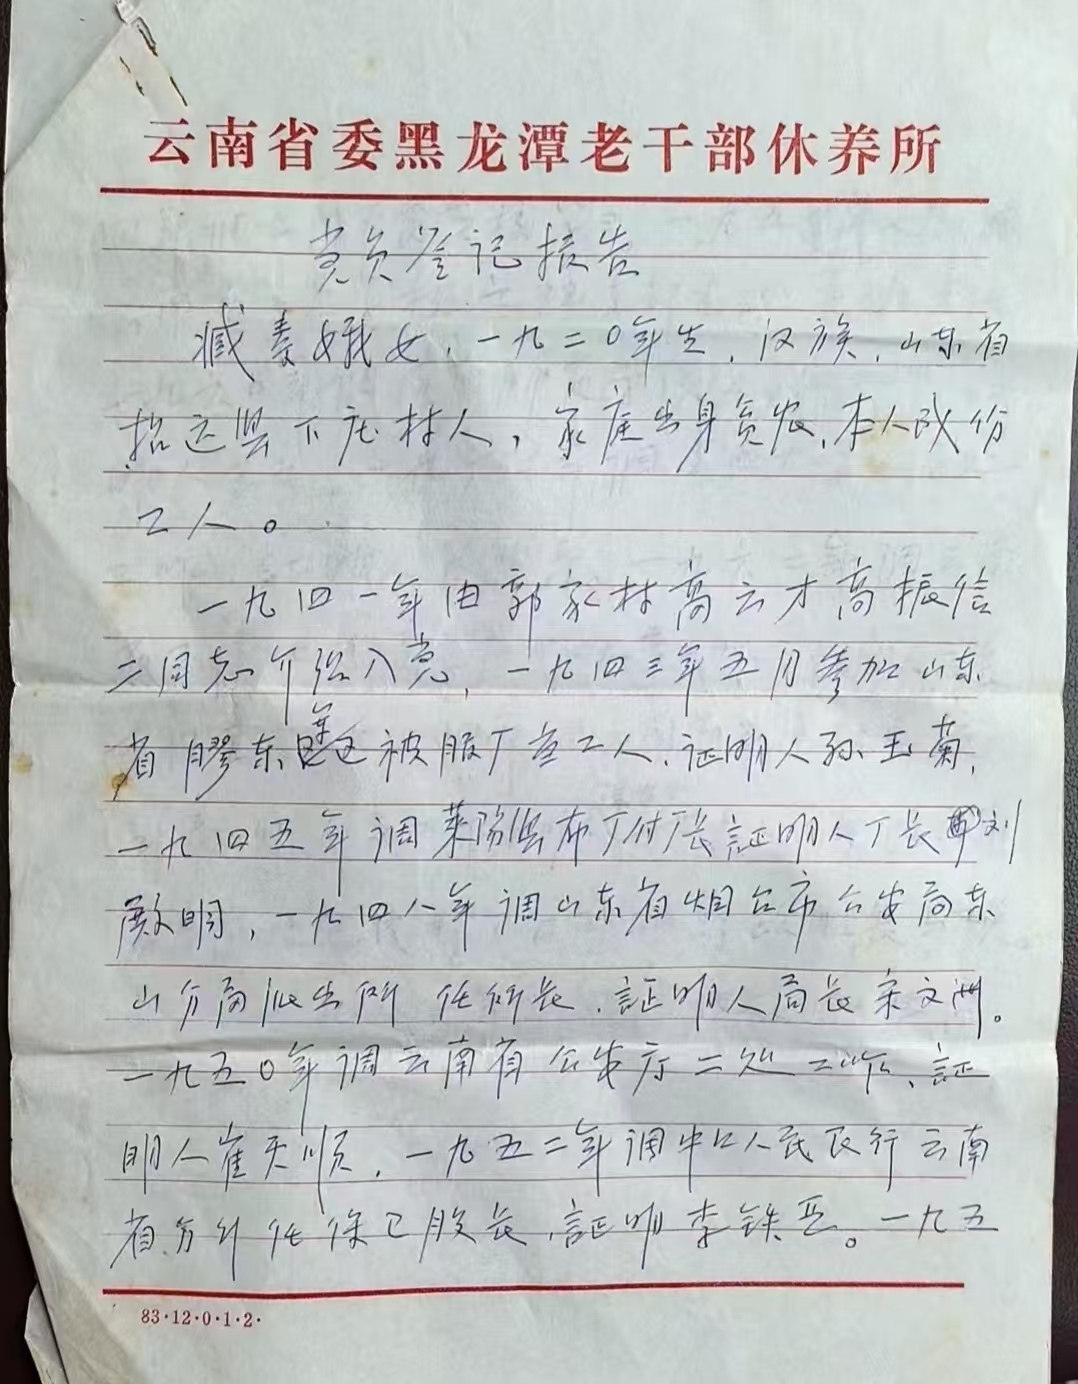 云南省委黑龙潭老干部休养所
党员登记报告
臧秦娥女，一九二〇年生，汉族，山东省
招远县下庄村人，家庭出身贫农，本人成份
工人。
一九四一年由郭家村高云才高振信
二同志介绍入党，一九四三年五月参加山东
省胶东军区被服厂当工人，证明人孙玉菊，
一九四五年调莱阳县布厂付厂长証明人厂长刘
殿明，一九四八年调山东省烟台市公安局东
山分局派出所任所长，証明人局长宋文洲。
一九五〇年调云南省公安厅二处工作、証
明人崔天顺，一九五二年调中口人民民行云南
省分行任保卫股长，証明李铁丕。一九五
83·12·0·1·2·